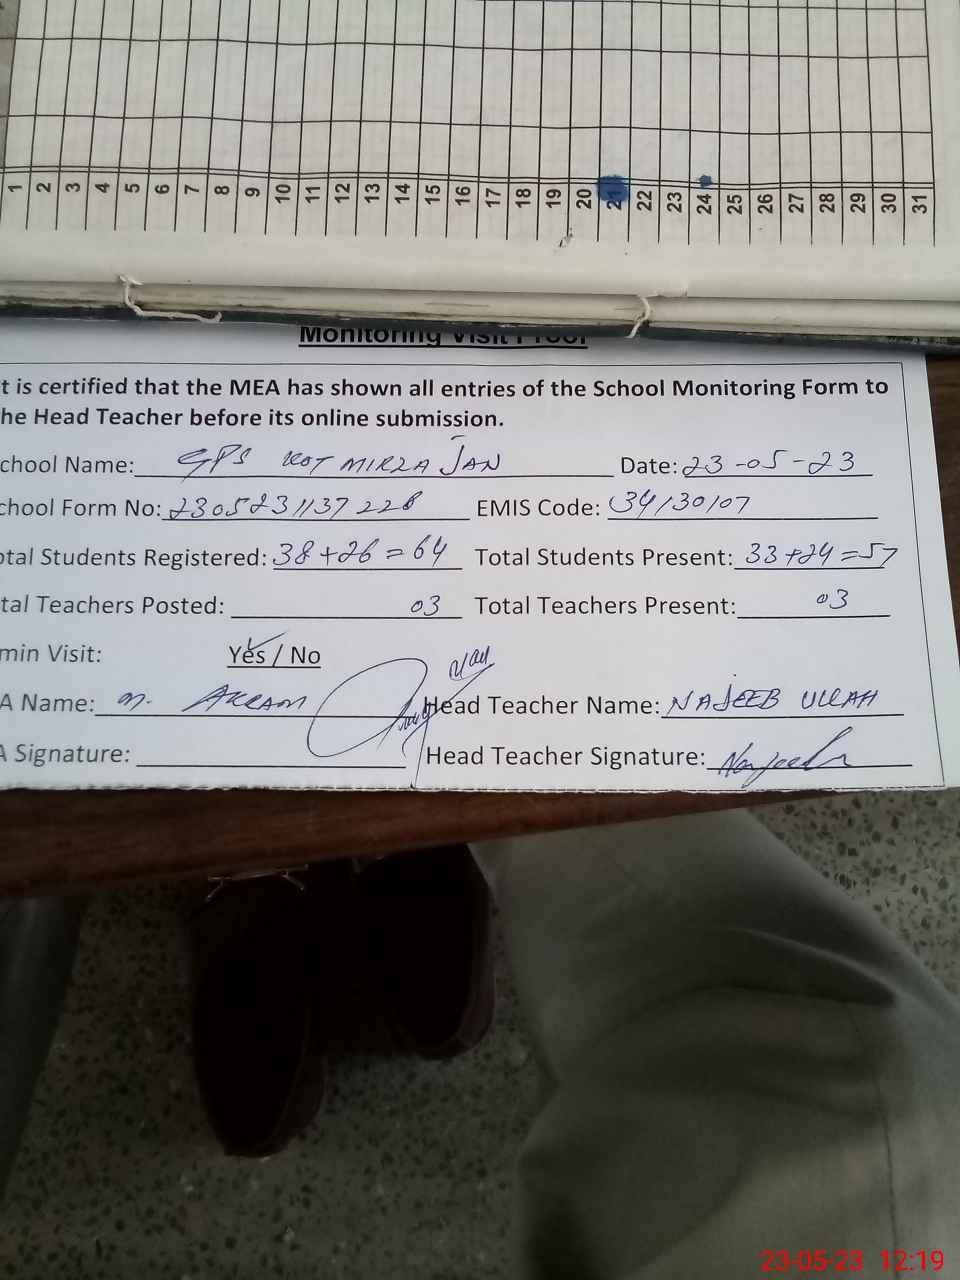 1 2 3 4 5 6 7 8 9 10 11 12 13 14 15 16 17 18 19 20 21 22 23 24 25 26 27 28 29 30 31
Monitoring Visit Proof
t is certified that the MEA has shown all entries of the School Monitoring Form to
he Head Teacher before its online submission.
chool Name: GPS KOT MIRZA JAN Date: 23-05-23
chool Form No: 2305231137228 EMIS Code: 34130107
otal Students Registered: 38+26=64 Total Students Present: 33+24=57
tal Teachers Posted: 03 Total Teachers Present: 03
min Visit: Yes / No
A Name: M. AKRAM Head Teacher Name: NAJEEB ULLAH
A Signature: Head Teacher Signature: Najeeb
23-05-23 12:19